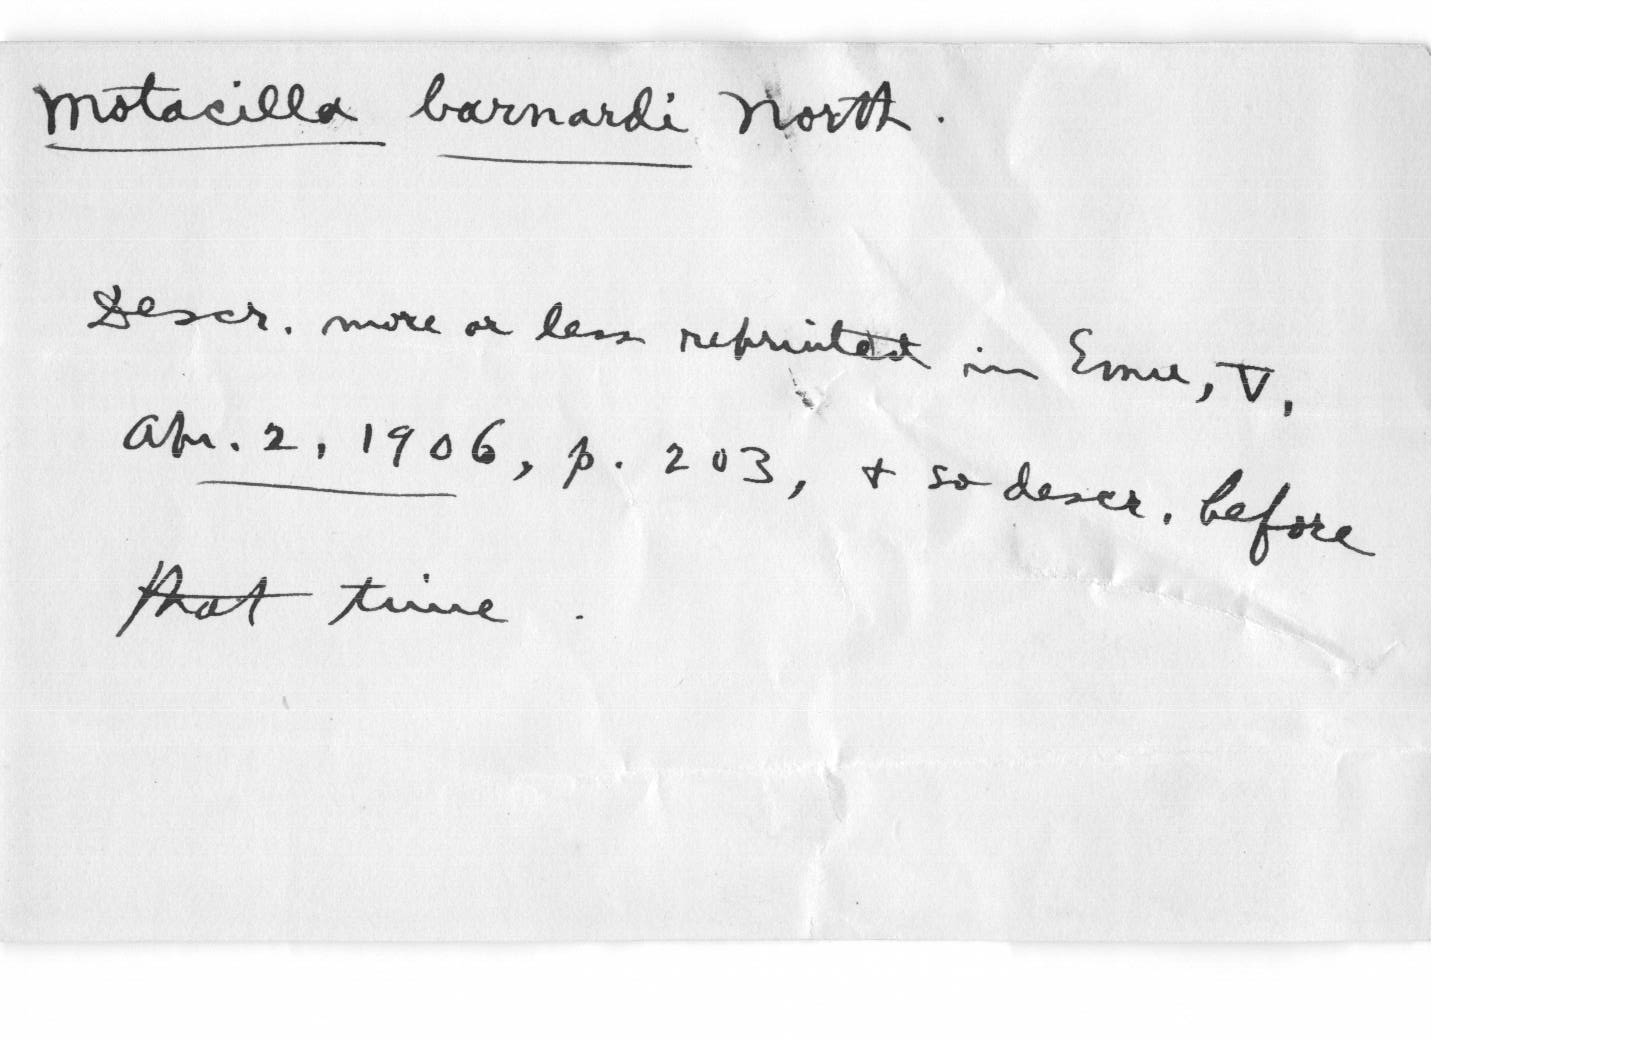 Motacilla barnardi North.
Descr. more or less reprinted in Emu, V,
Apr. 2, 1906, p. 203, + so descr. before
that time.